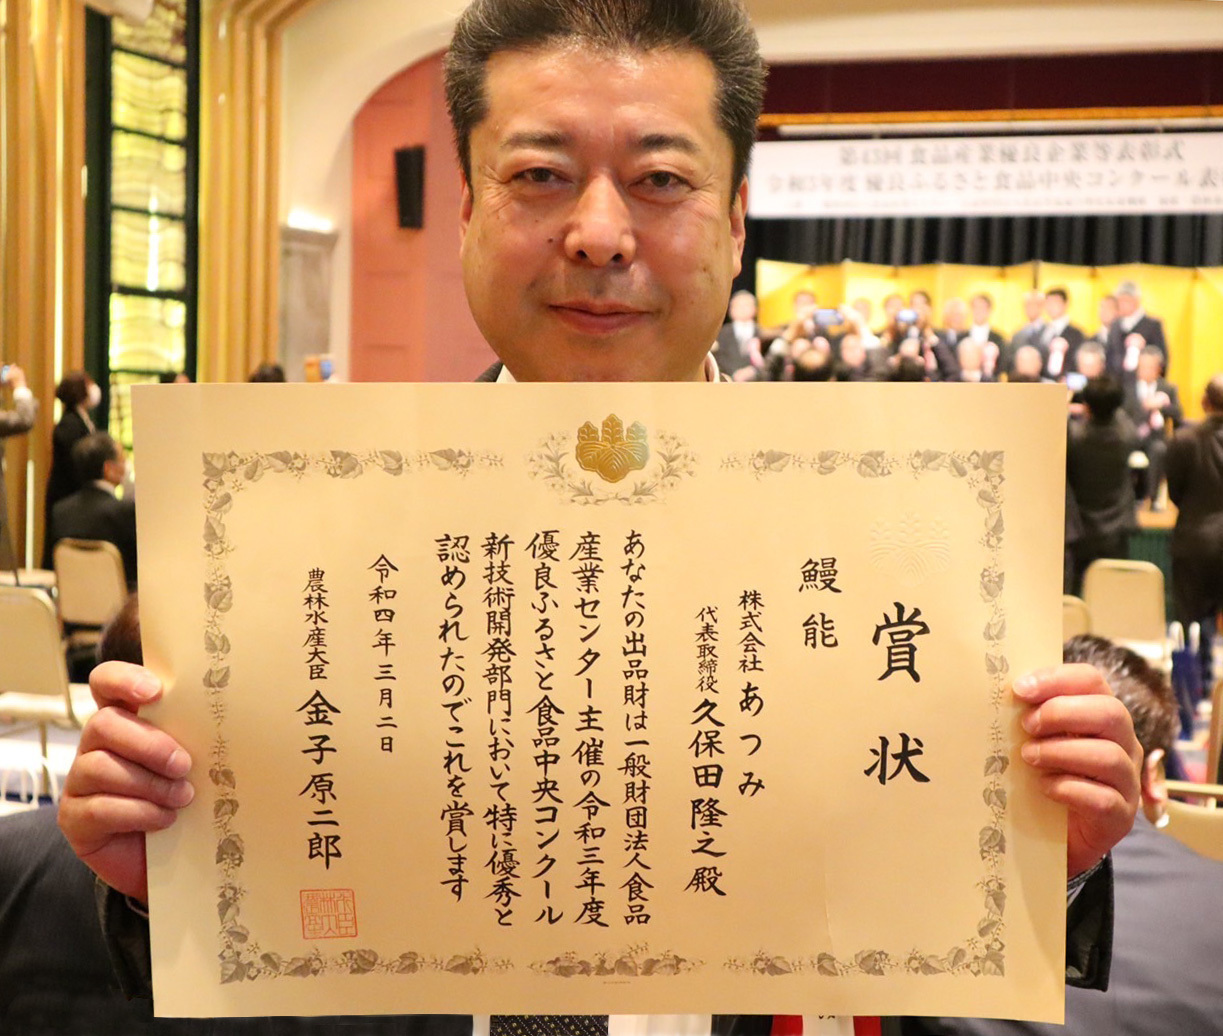 第43回 食品産業優良企業等表彰式
令和3年度 優良ふるさと食品中央コンクール 表
賞状
鰻能
株式会社 あつみ
代表取締役 久保田隆之殿
あなたの出品財は一般財団法人食品
産業センター主催の令和三年度
優良ふるさと食品中央コンクール
新技術開発部門において特に優秀と
認められたのでこれを賞します
令和四年三月二日
農林水産大臣 金子原二郎